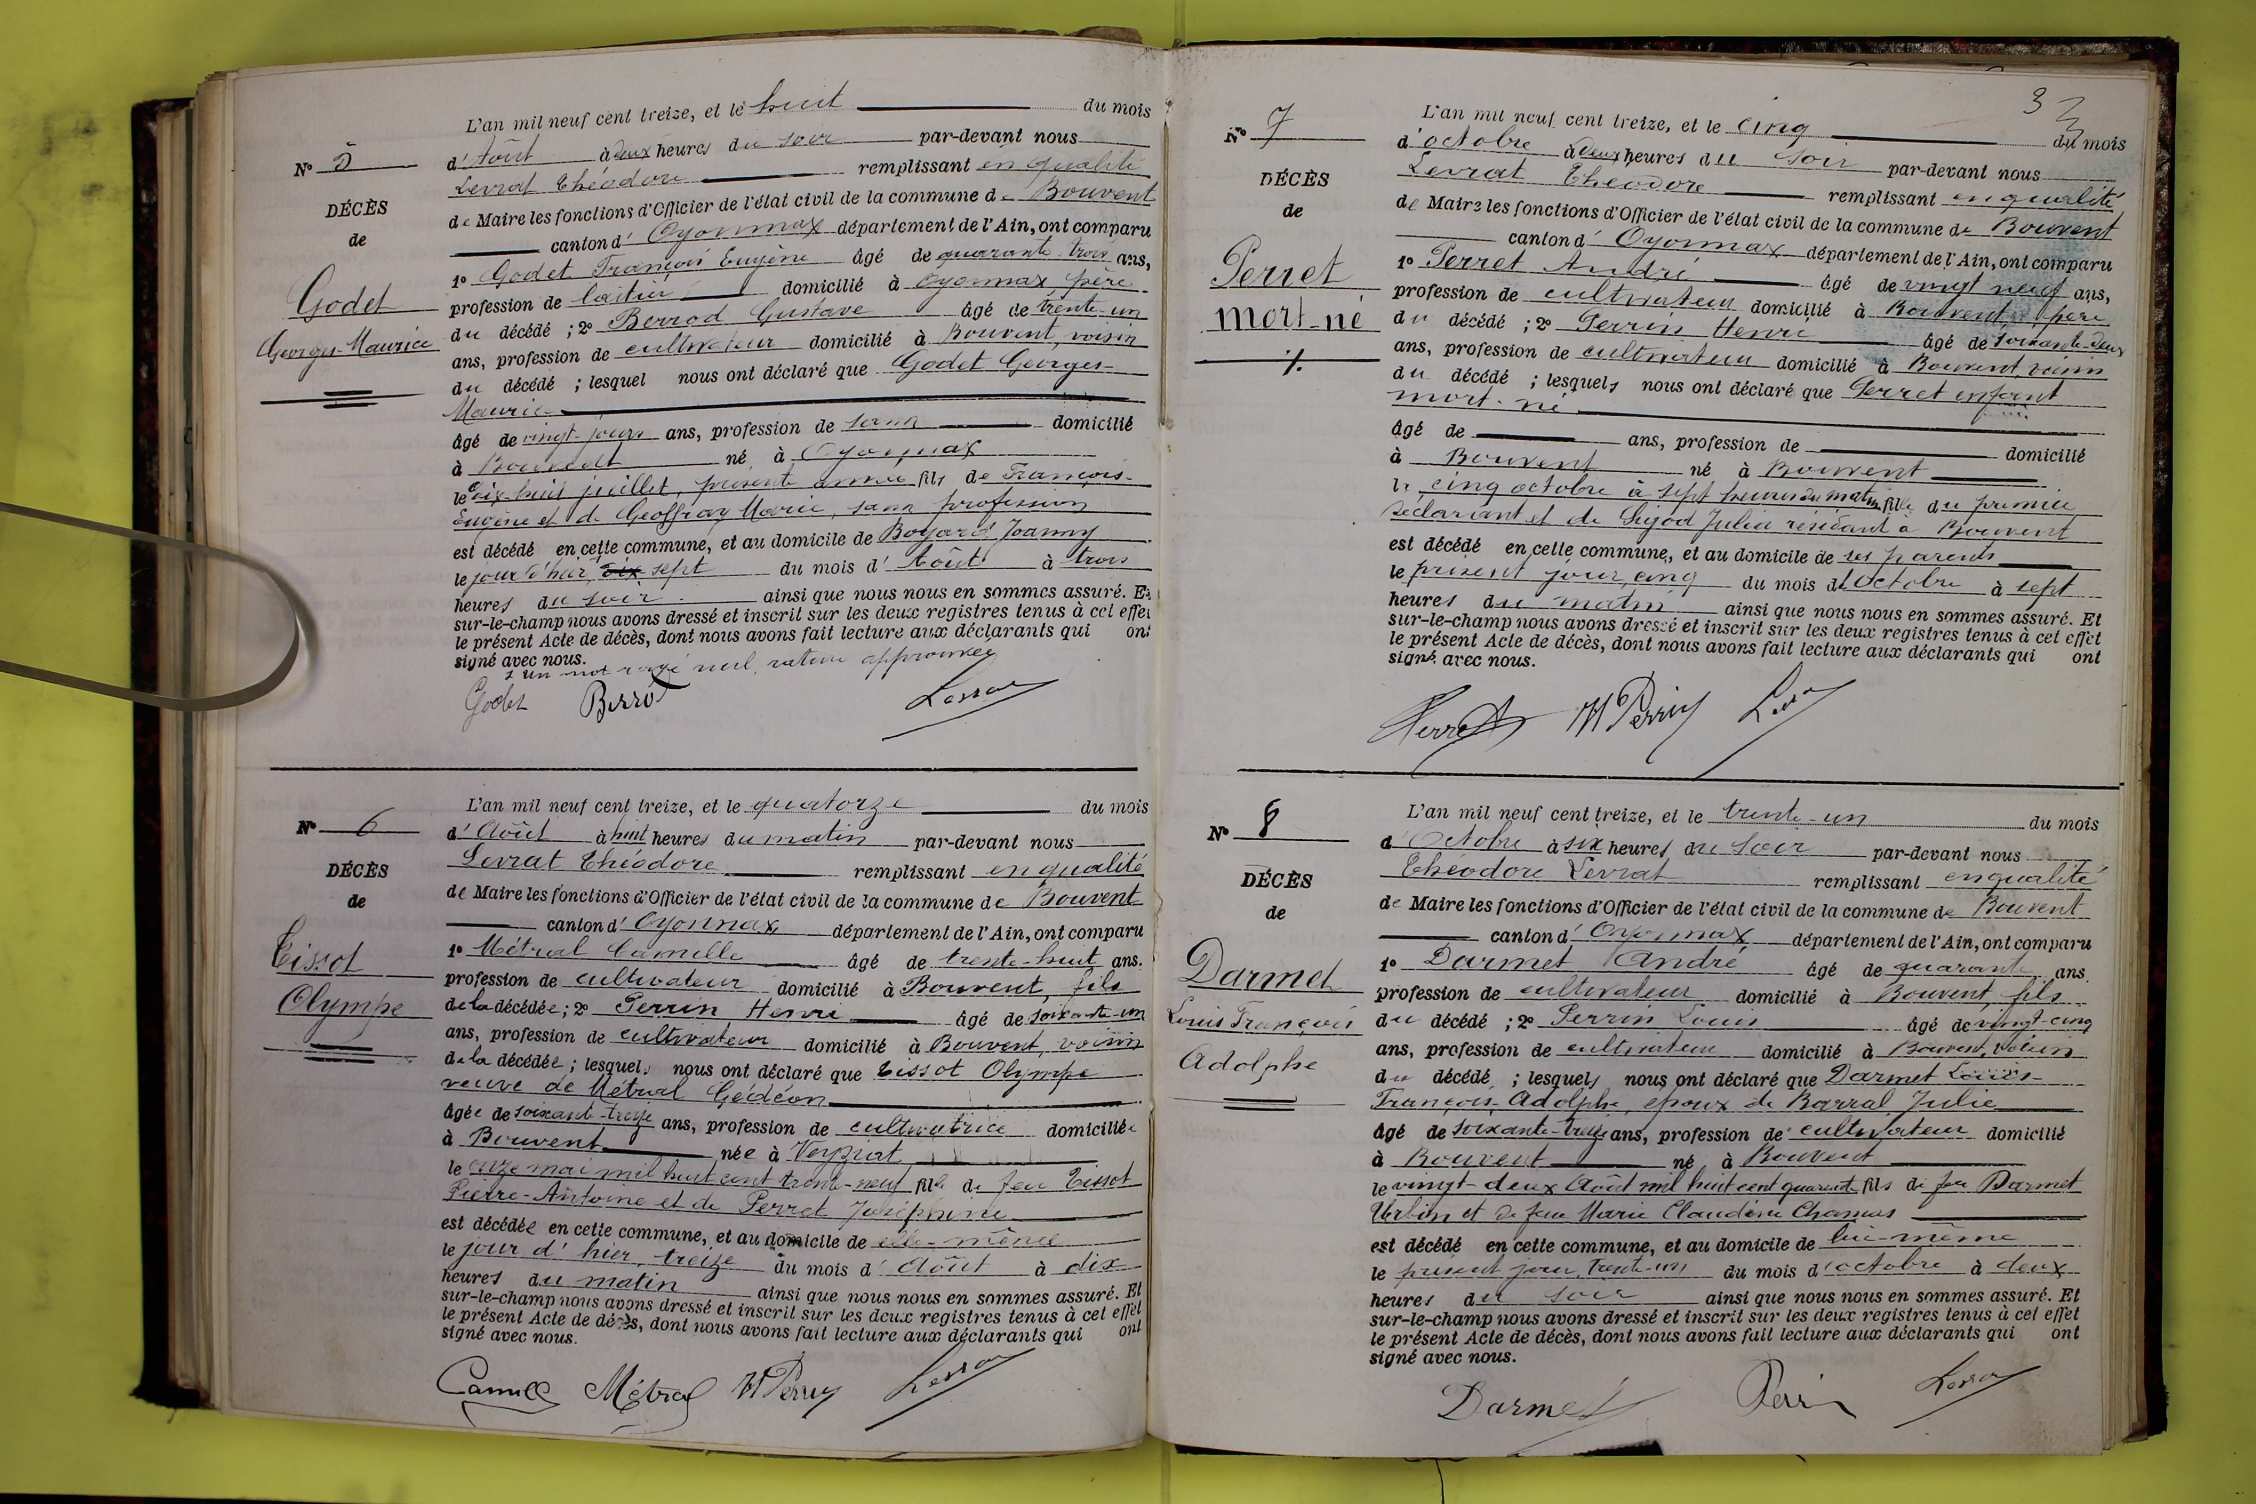 L'an mil neuf cent treize, et le huit du mois
N° 5
d'Août à deux heures du soir par-devant nous
Levrat Théodore remplissant en qualité
DÉCÈS
de Maire les fonctions d'Officier de l'état civil de la commune de Bouvent
de
canton d'Oyonnax département de l'Ain, ont comparu
1° Godet François Eugène âgé de quarante-trois ans,
Godet
profession de laitier domicilié à Oyonnax, père
du décédé ; 2° Berrod Gustave âgé de trente-un
Georges-Maurice
ans, profession de cultivateur domicilié à Bouvent, voisin
du décédé ; lesquel nous ont déclaré que Godet Georges-
Maurice
âgé de vingt-jours ans, profession de sans domicilié
à Bouvent né à Oyonnax
le dix-huit juillet, présente année fils de François-
Eugène et de Geoffray Marie, sans profession
est décédé en cette commune, et au domicile de Boyard Joanny
le jour d'hier, dix sept du mois d'Août à trois
heures du soir. ainsi que nous nous en sommes assuré. Et
sur-le-champ nous avons dressé et inscrit sur les deux registres tenus à cet effet
le présent Acte de décès, dont nous avons fait lecture aux déclarants qui ont
signé avec nous.
un mot rayé nul, rature approuvée
Godet Berrod Levrat
L'an mil neuf cent treize, et le quatorze du mois
N° 6
d'Août à huit heures du matin par-devant nous
Levrat Théodore remplissant en qualité
DÉCÈS
de Maire les fonctions d'Officier de l'état civil de la commune de Bouvent
de
canton d'Oyonnax, département de l'Ain, ont comparu
Tissot
1° Métral Camille âgé de trente-huit ans.
profession de cultivateur domicilié à Bouvent, fils
Olympe
de la décédée ; 2° Perrin Henri âgé de soixante-un
ans, profession de cultivateur domicilié à Bouvent, voisin
de la décédée ; lesquels nous ont déclaré que Tissot Olympe
veuve de Métral Gédéon
âgée de soixante-treize ans, profession de cultivatrice domiciliée
à Bouvent née à Veyziat
le onze mai mil huit cent trente-neuf fille de feu Tissot
Pierre-Antoine et de Perret Joséphine
est décédée en cette commune, et au domicile de elle-même
le jour d'hier, treize du mois d'Août à dix
heures du matin ainsi que nous nous en sommes assuré. Et
sur-le-champ nous avons dressé et inscrit sur les deux registres tenus à cet effet
le présent Acte de décès, dont nous avons fait lecture aux déclarants qui ont
signé avec nous.
Camille Métral H Perrin Levrat
3
L'an mil neuf cent treize, et le cinq du mois
N° 7
d'octobre à deux heures du soir par-devant nous
Levrat Théodore remplissant en qualité
DÉCÈS
de Maire les fonctions d'Officier de l'état civil de la commune de Bouvent
de
canton d'Oyonnax département de l'Ain, ont comparu
Perret
1° Perret André âgé de vingt neuf ans,
profession de cultivateur domicilié à Bouvent, père
mort-né
du décédé ; 2° Perrin Henri âgé de soixante-deux
ans, profession de cultivateur domicilié à Bouvent, voisin
du décédé ; lesquels nous ont déclaré que Perret enfant
mort-né
âgé de ans, profession de domicilié
à Bouvent né à Bouvent
le cinq octobre à sept heures du matin fils du premier
déclarant et de Sigod Julia résidant à Bouvent
est décédé en cette commune, et au domicile de ses parents
le présent jour, cinq du mois d'Octobre à sept
heures du matin ainsi que nous nous en sommes assuré. Et
sur-le-champ nous avons dressé et inscrit sur les deux registres tenus à cet effet
le présent Acte de décès, dont nous avons fait lecture aux déclarants qui ont
signé avec nous.
Perret H Perrin Levrat
L'an mil neuf cent treize, et le trente-un du mois
N° 8
d'Octobre à six heures du soir par-devant nous
Théodore Levrat remplissant en qualité
DÉCÈS
de Maire les fonctions d'Officier de l'état civil de la commune de Bouvent
de
canton d'Oyonnax département de l'Ain, ont comparu
Darmet
1° Darmet André âgé de quarante ans
profession de cultivateur domicilié à Bouvent, fils
Louis François
du décédé ; 2° Perrin Louis âgé de vingt-cinq
ans, profession de cultivateur domicilié à Bouvent, voisin
Adolphe
du décédé ; lesquels nous ont déclaré que Darmet Louis-
François, Adolphe, époux de Barral Julie
âgé de soixante-treize ans, profession de cultivateur domicilié
à Bouvent né à Bouvent
le vingt-deux Août mil huit cent quarante fils de feu Darmet
Urbin et de feue Marie Claudine Chanus
est décédé en cette commune, et au domicile de lui-même
le présent jour, trente-un du mois d'octobre à deux
heures du soir ainsi que nous nous en sommes assuré. Et
sur-le-champ nous avons dressé et inscrit sur les deux registres tenus à cet effet
le présent Acte de décès, dont nous avons fait lecture aux déclarants qui ont
signé avec nous.
Darmet Perrin Levrat